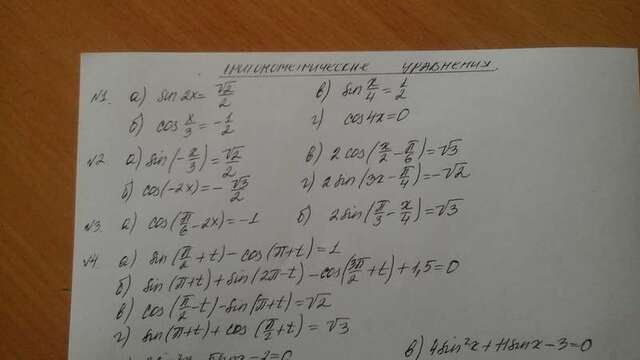 Тригонометрические уравнения.
№1. а) sin 2x = √2/2 в) sin x/4 = 1/2
б) cos x/3 = -1/2 г) cos 4x = 0
№2. а) sin(-x/3) = √2/2 в) 2cos(x/2 - π/6) = √3
б) cos(-2x) = -√3/2 г) 2sin(3x - π/4) = -√2
№3. а) cos(π/6 - 2x) = -1 б) 2sin(π/3 - x/4) = √3
№4. а) sin(π/2 + t) - cos(π + t) = 1
б) sin(π + t) + sin(2π - t) - cos(3π/2 + t) + 1,5 = 0
в) cos(π/2 - t) - sin(π + t) = √2
г) sin(π + t) + cos(π/2 + t) = √3
в) 4sin²x + 11sinx - 3 = 0